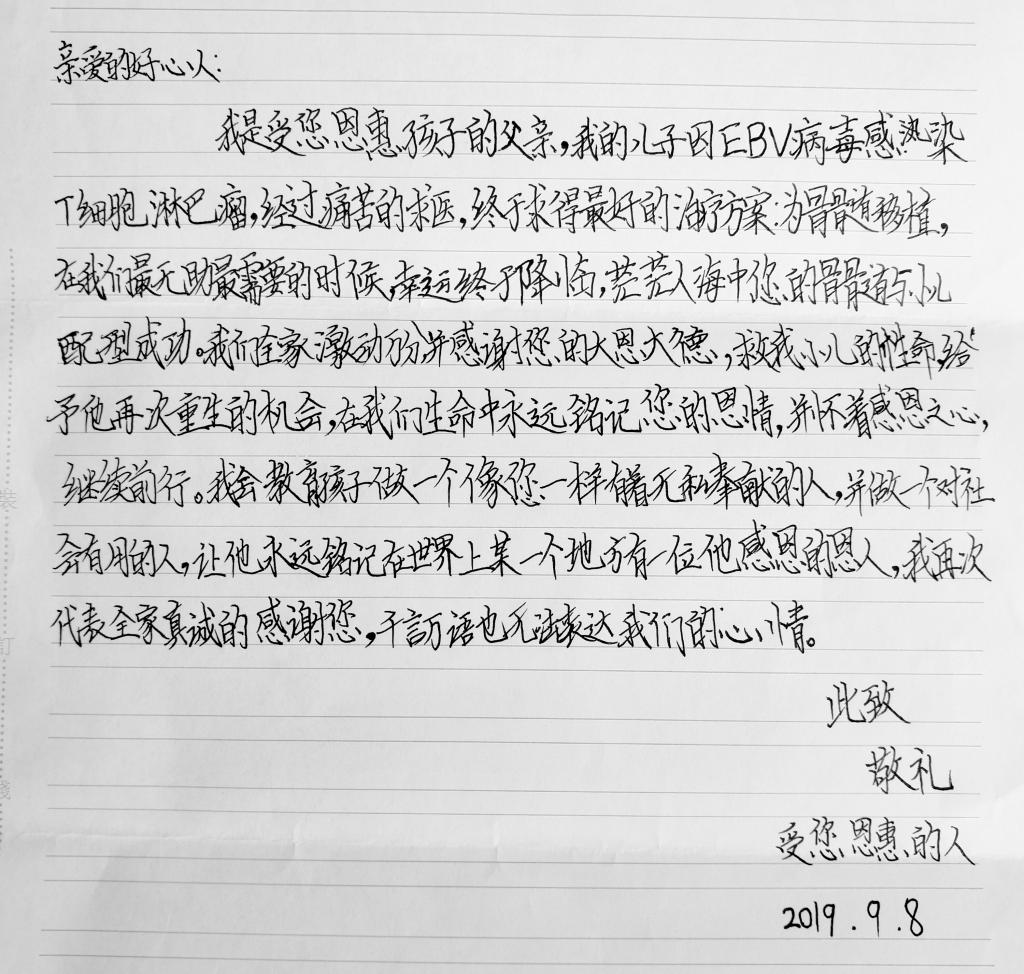 亲爱的好心人:
我是受您恩惠孩子的父亲,我的儿子因EBV病毒感染
T细胞淋巴瘤,经过痛苦的求医,终于求得最好的治疗方案:为骨髓移植,
在我们最无助最需要的时候,幸运终于降临,茫茫人海中您的骨髓与小儿
配型成功。我们全家激动万分并感谢您的大恩大德,救我小儿的性命,给
予他再次重生的机会,在我们生命中永远铭记您的恩情,并怀着感恩之心,
继续前行。我会教育孩子做一个像您一样有着无私奉献的人,并做一个对社
会有用的人,让他永远铭记在世界上某一个地方有一位他感恩的恩人,我再次
代表全家真诚的感谢您,千言万语也无法表达我们的心情。
此致
敬礼
受您恩惠的人
2019.9.8
装
訂